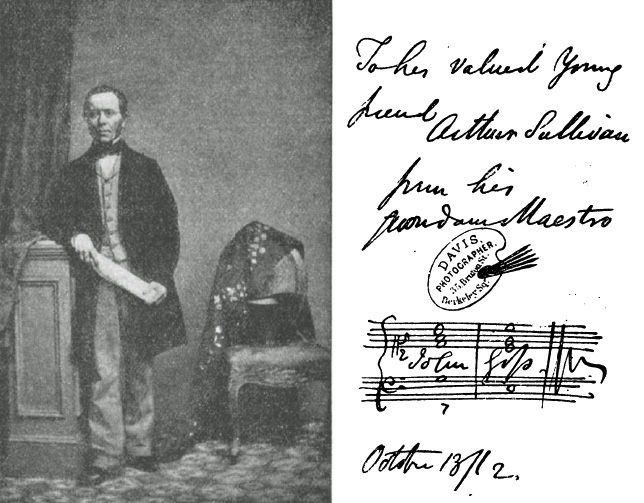 To his valued Young
friend
Arthur Sullivan
from his
quondam Maestro
DAVIS.
PHOTOGRAPHER.
35 Bruton St.
Berkeley Sq.
John Goss
7
October